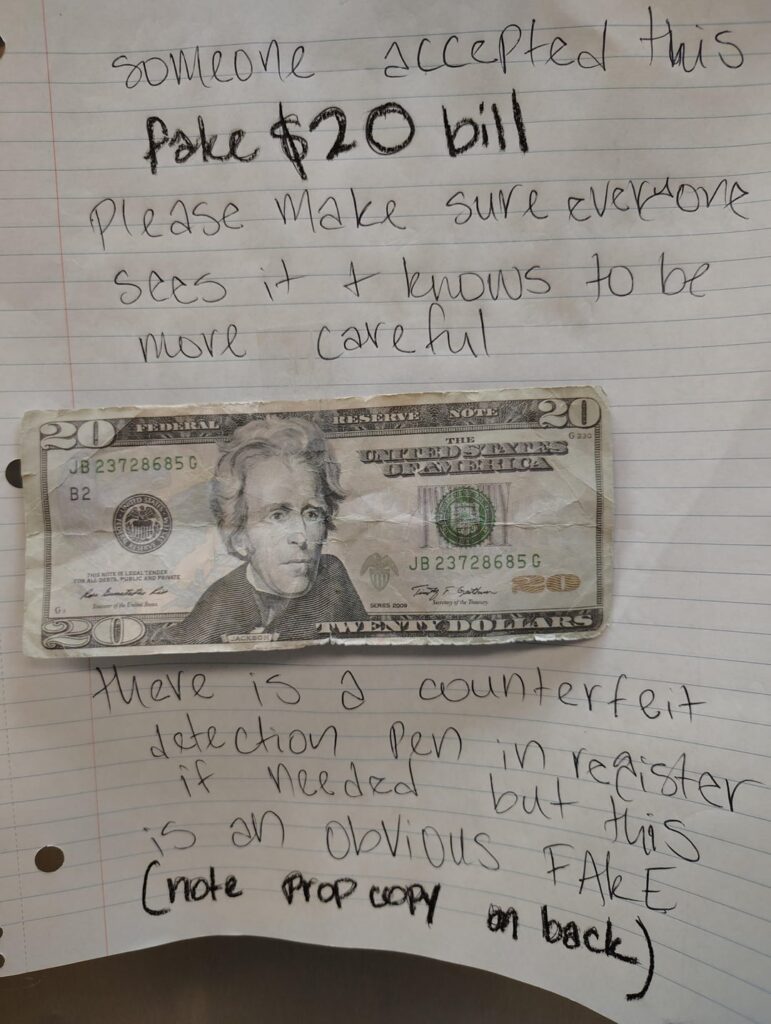 someone accepted this
fake $20 bill
Please make sure everyone
sees it + knows to be
more careful
20 FEDERAL RESERVE NOTE 20
THE
UNITED STATES
OF AMERICA
JB 23728685 G
B2
JB 23728685 G
THIS NOTE IS LEGAL TENDER
FOR ALL DEBTS, PUBLIC AND PRIVATE
Treasurer of the United States
SERIES 2009
Secretary of the Treasury
20
20 JACKSON TWENTY DOLLARS
there is a counterfeit
detection pen in register
if needed but this
is an obvious FAKE
(note prop copy on back)